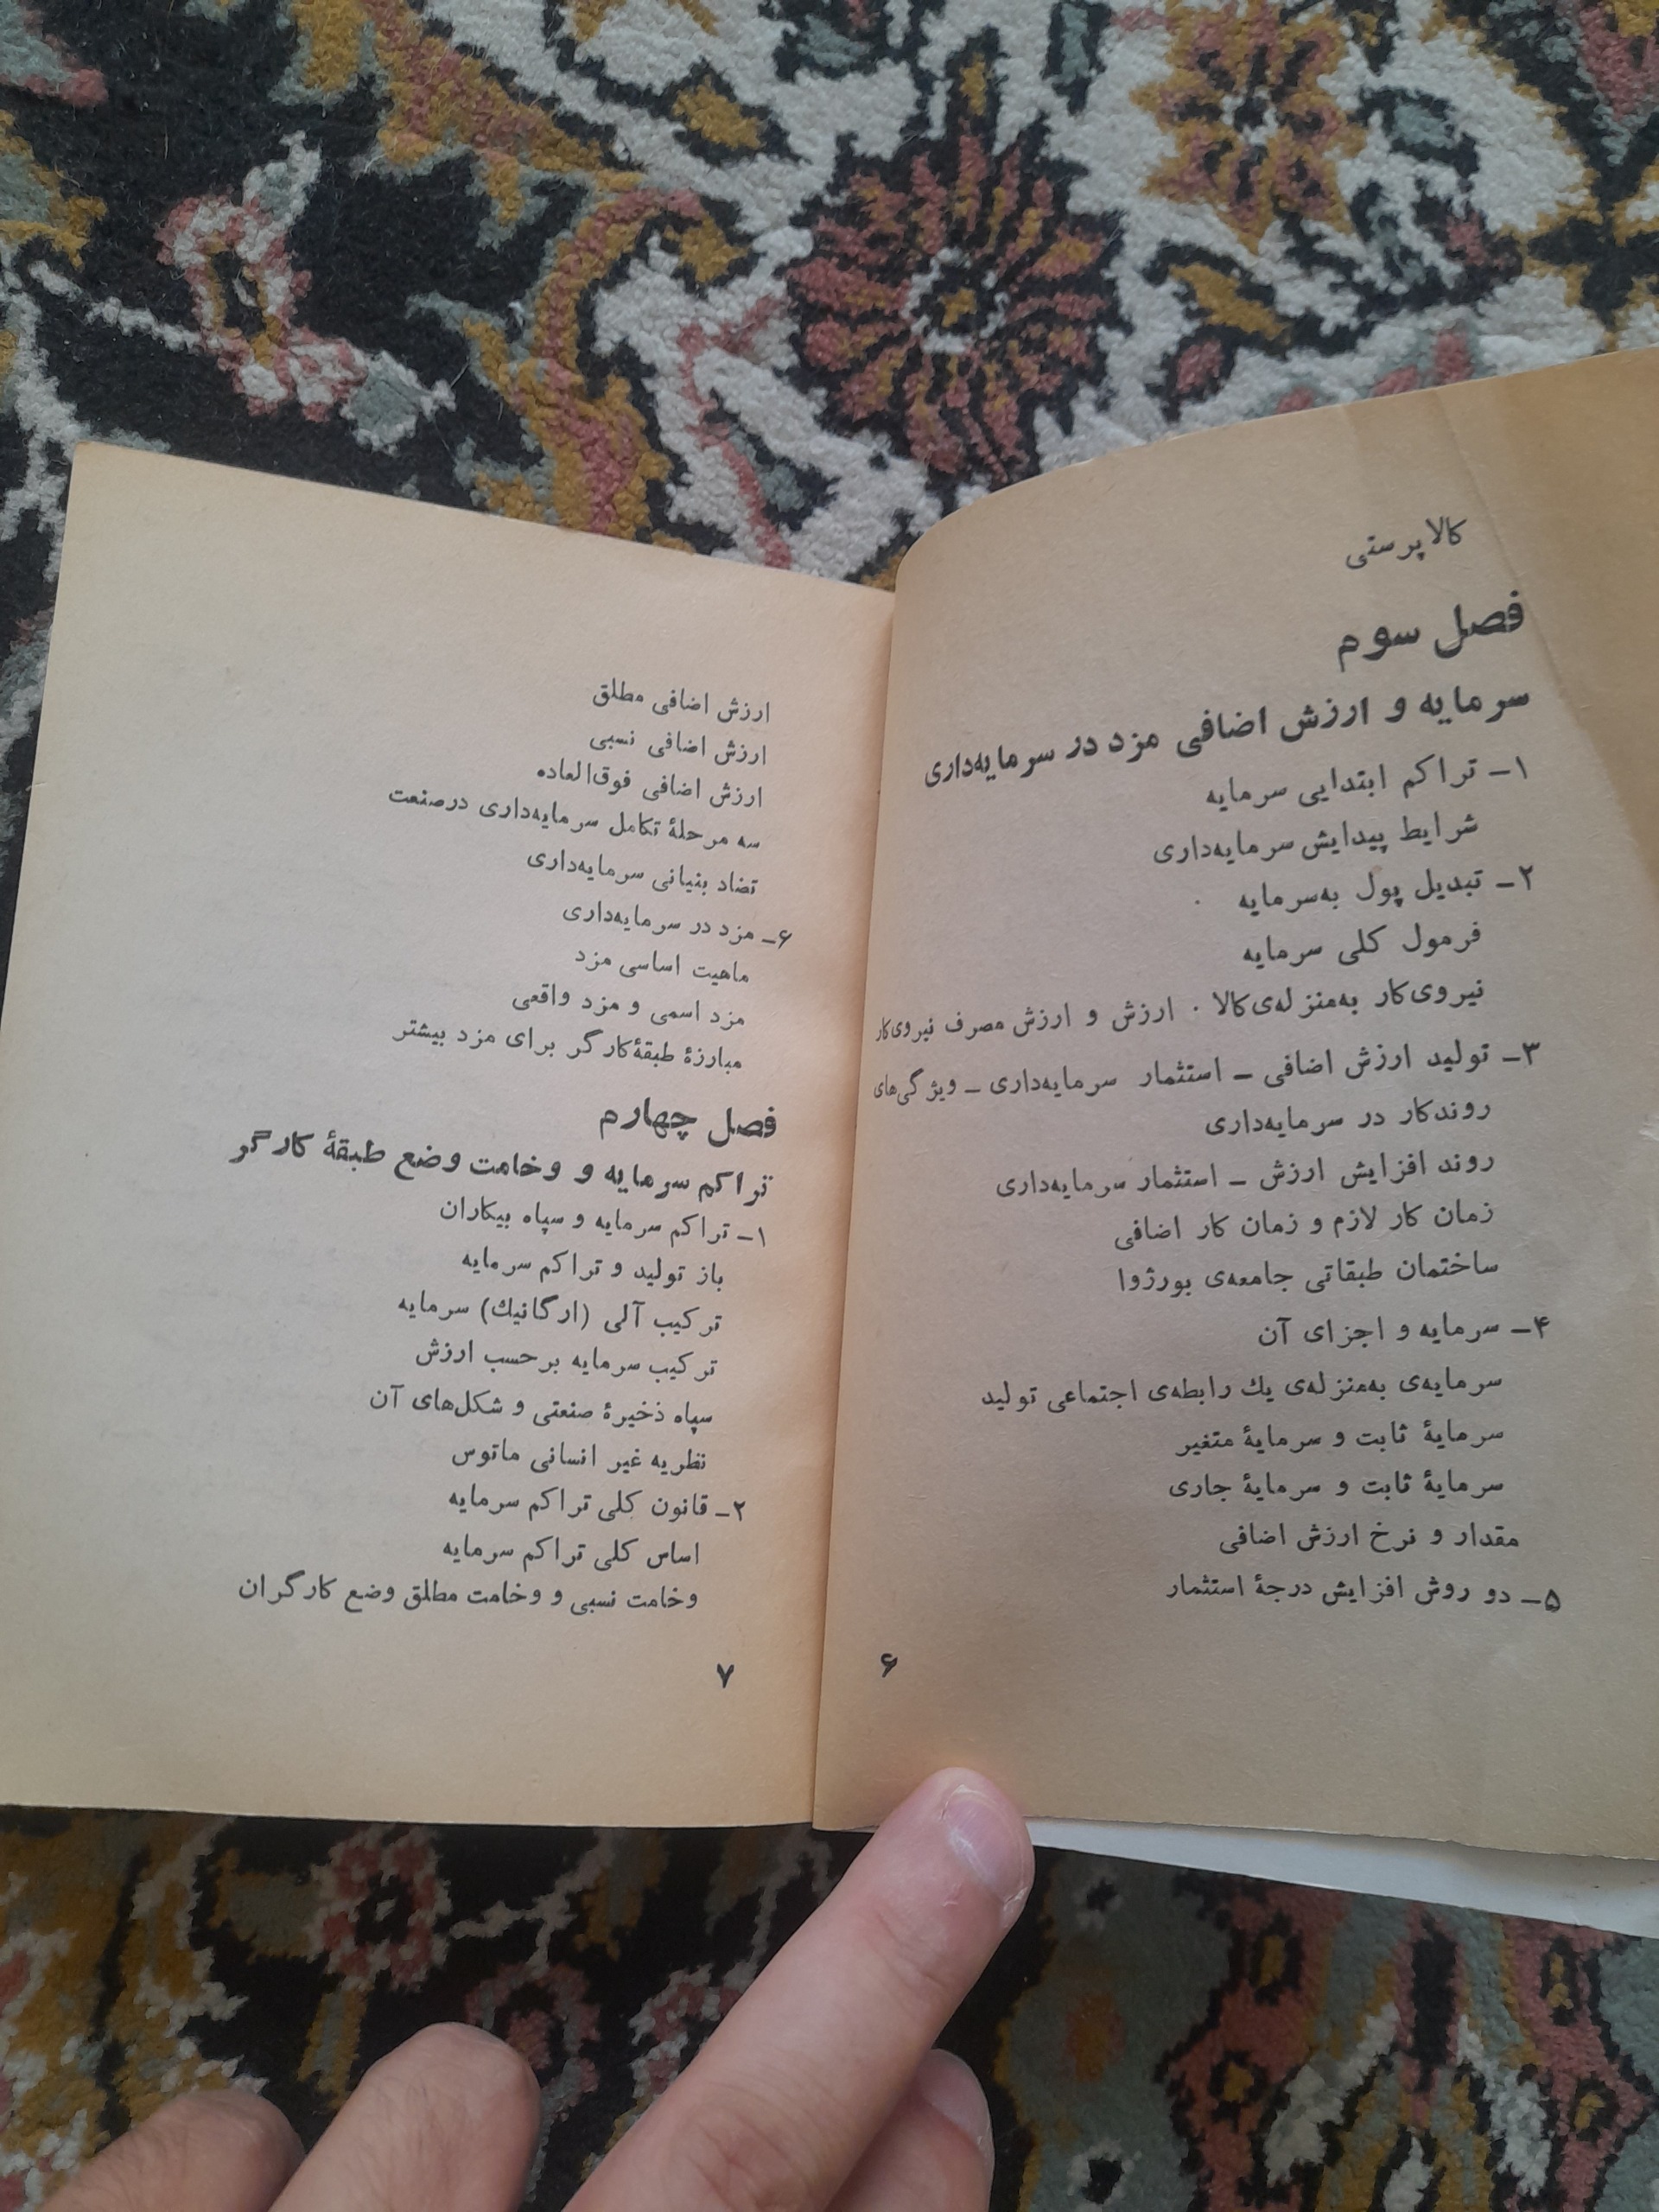 کالاپرستی
فصل سوم
سرمایه و ارزش اضافی مزد در سرمایه‌داری
۱ــ تراکم ابتدایی سرمایه
شرایط پیدایش سرمایه‌داری
۲ــ تبدیل پول به‌سرمایه
فرمول کلی سرمایه
نیروی‌کار به‌منزله‌ی‌کالا ۰ ارزش و ارزش مصرف نیروی‌کار
۳ــ تولید ارزش اضافی ــ استثمار سرمایه‌داری ــ ویژگی‌های
روندکار در سرمایه‌داری
روند افزایش ارزش ــ استثمار سرمایه‌داری
زمان کار لازم و زمان کار اضافی
ساختمان طبقاتی جامعه‌ی بورژوا
۴ــ سرمایه و اجزای آن
سرمایه‌ی به‌منزله‌ی یك رابطه‌ی اجتماعی تولید
سرمایهٔ ثابت و سرمایهٔ متغیر
سرمایهٔ ثابت و سرمایهٔ جاری
مقدار و نرخ ارزش اضافی
۵ــ دو روش افزایش درجهٔ استثمار
۶
ارزش اضافی مطلق
ارزش اضافی نسبی
ارزش اضافی فوق‌العاده
سه مرحلهٔ تکامل سرمایه‌داری درصنعت
تضاد بنیانی سرمایه‌داری
۶ــ مزد در سرمایه‌داری
ماهیت اساسی مزد
مزد اسمی و مزد واقعی
مبارزهٔ طبقهٔ‌کارگر برای مزد بیشتر
فصل چهارم
تراکم سرمایه و وخامت وضع طبقهٔ کارگر
۱ــ تراکم سرمایه و سپاه بیکاران
باز تولید و تراکم سرمایه
ترکیب آلی (ارگانیك) سرمایه
ترکیب سرمایه برحسب ارزش
سپاه ذخیرهٔ صنعتی و شکل‌های آن
نظریه غیر انسانی ماتوس
۲ــ قانون کلی تراکم سرمایه
اساس کلی تراکم سرمایه
وخامت نسبی و وخامت مطلق وضع کارگران
۷